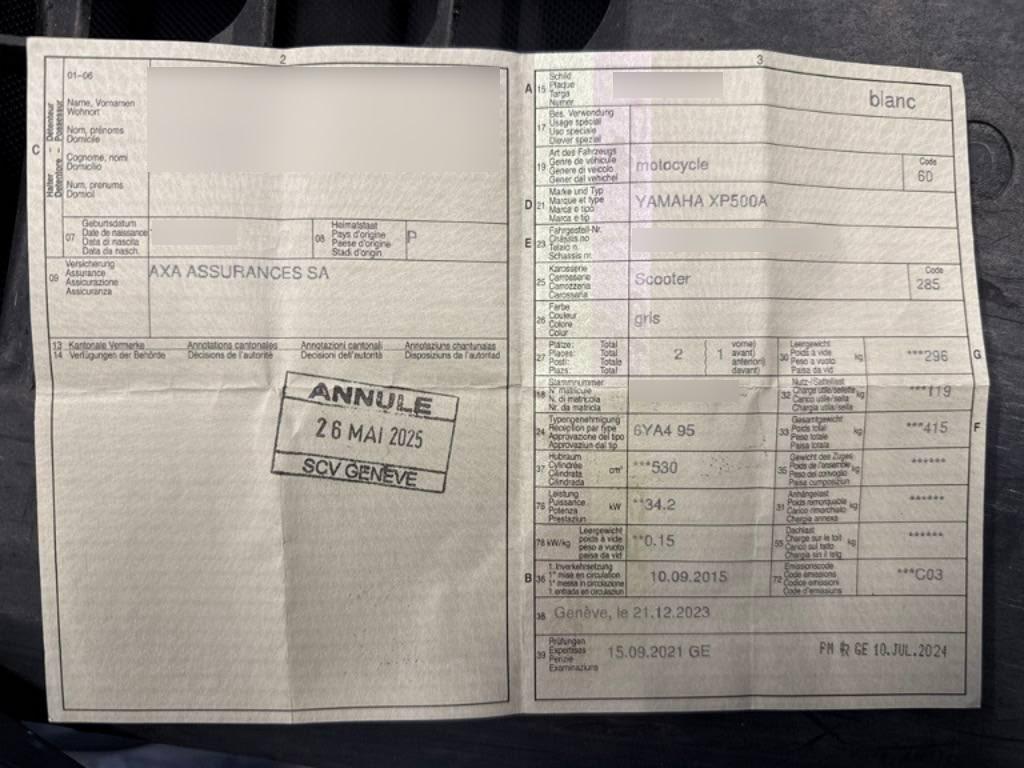 2
01–06
Name, Vornamen
Wohnort
Nom, prénoms
Domicile
Cognome, nomi
Domicilio
Num, prenums
Domicil
C
Halter – Détenteur
Detentore – Possessur
07
Geburtsdatum
Date de naissance
Data di nascita
Data da nasch.
08
Heimatstaat
Pays d'origine
Paese d'origine
Stadi d'origin
P
09
Versicherung
Assurance
Assicurazione
Assicuranza
AXA ASSURANCES SA
13 Kantonale Vermerke Annotations cantonales Annotazioni cantonali Annotaziuns chantunalas
14 Verfügungen der Behörde Décisions de l'autorité Decisioni dell'autorità Disposiziuns da l'autoritad
ANNULE
26 MAI 2025
SCV GENEVE
3
A 15
Schild
Plaque
Targa
Numer
blanc
17
Bes. Verwendung
Usage spécial
Uso speciale
Diever spezial
19
Art des Fahrzeugs
Genre de véhicule
Genere di veicolo
Gener dal vehichel
motocycle
Code
60
D 21
Marke und Typ
Marque et type
Marca e tipo
Marca e tip
YAMAHA XP500A
E 23
Fahrgestell-Nr.
Châssis no
Telaio n.
Schassis nr.
25
Karosserie
Carrosserie
Carrozzeria
Carossaria
Scooter
Code
285
26
Farbe
Couleur
Colore
Colur
gris
27
Plätze: Total
Places: Total
Posti: Totale
Plazs: Total
2 ( 1
vorne)
avant)
anteriori)
davant)
30
Leergewicht
Poids à vide
Peso a vuoto
Paisa da vid
kg
***296
G
18
Stammnummer
N° matricule
N. di matricola
Nr. da matricla
32
Nutz-/Sattellast
Charge utile/sellette
Carico utile/sella
Chargia utila/sella
kg
***119
24
Typengenehmigung
Réception par type
Approvazione del tipo
Approvaziun dal tip
6YA4 95
33
Gesamtgewicht
Poids total
Peso totale
Paisa totala
kg
***415
F
37
Hubraum
Cylindrée
Cilindrata
Cilindrada
cm³
***530
35
Gewicht des Zuges
Poids de l'ensemble
Peso del convoglio
Paisa cumposiziun
kg
******
76
Leistung
Puissance
Potenza
Prestaziun
kW
**34.2
31
Anhängelast
Poids remorquable
Carico rimorchiato
Chargia annexa
kg
******
78 kW/kg
Leergewicht
poids à vide
peso a vuoto
paisa da vid
**0.15
55
Dachlast
Charge sur le toit
Carico sul tetto
Chargia sin il tetg
kg
******
B 36
1. Inverkehrsetzung
1re mise en circulation
1a messa in circolazione
1. entrada en circulaziun
10.09.2015
72
Emissionscode
Code émissions
Codice emissioni
Code d'emissiuns
***C03
38 Genève, le 21.12.2023
39
Prüfungen
Expertises
Perizie
Examinaziuns
15.09.2021 GE
GE 10.JUL.2024